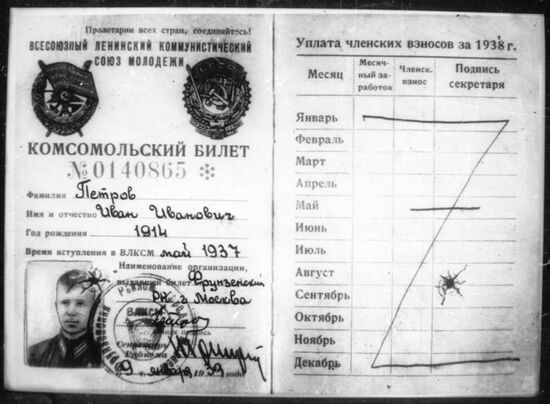 Пролетарии всех стран, соединяйтесь!
ВСЕСОЮЗНЫЙ ЛЕНИНСКИЙ КОММУНИСТИЧЕСКИЙ
СОЮЗ МОЛОДЕЖИ
КОМСОМОЛЬСКИЙ БИЛЕТ
№ 0140865 *
Фамилия Петров
Имя и отчество Иван Иванович
Год рождения 1914
Время вступления в ВЛКСМ май 1937
Наименование организации,
выдавшей билет Фрунзенский
РК г. Москва
ВЛКСМ
подпись
Секретарь
Райкома
9 января 1939 года
Уплата членских взносов за 1938 г.
Месяц
Месяч-
ный за-
работок
Членск.
взнос
Подпись
секретаря
Январь
Февраль
Март
Апрель
Май
Июнь
Июль
Август
Сентябрь
Октябрь
Ноябрь
Декабрь